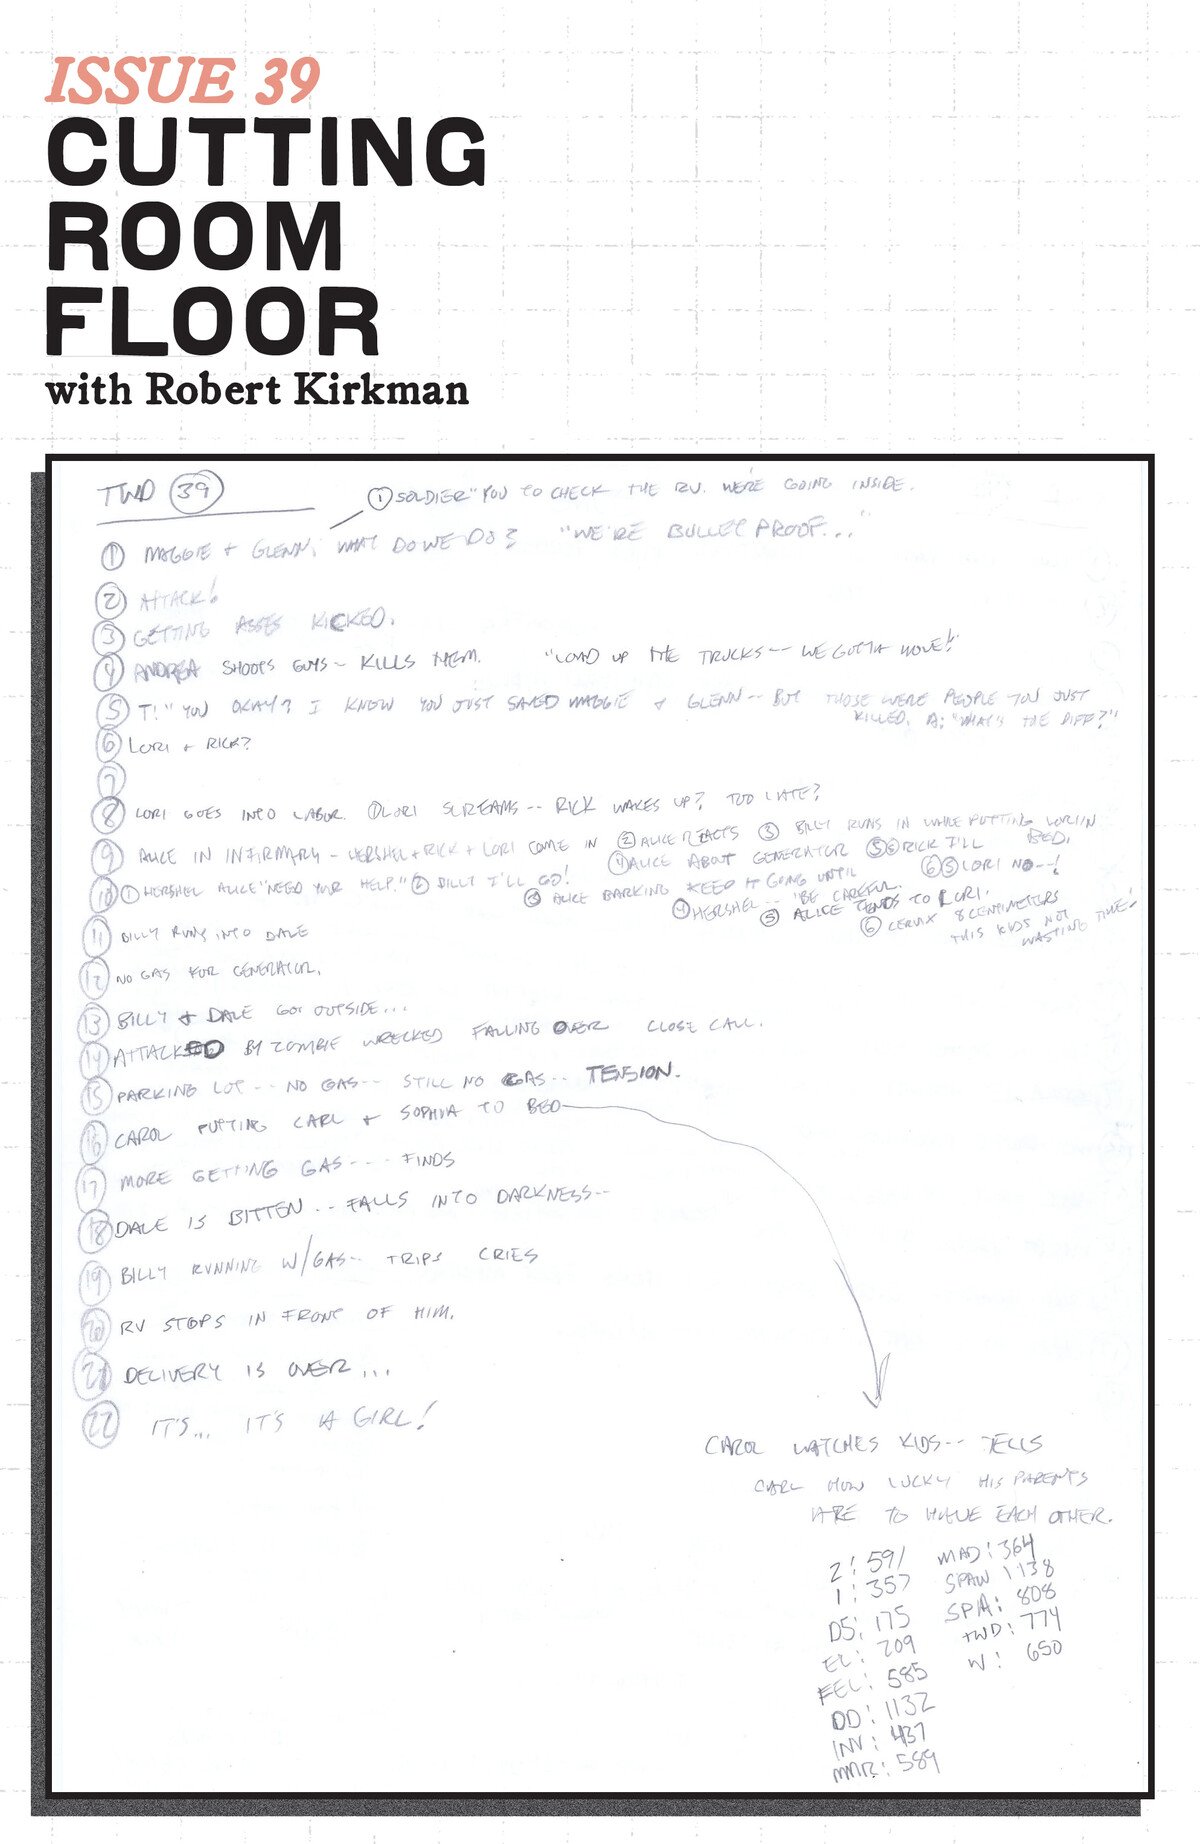 ISSUE 39
CUTTING
ROOM
FLOOR
with Robert Kirkman
TWD 39
① SOLDIER "YOU TO CHECK THE RV. WE'RE GOING INSIDE.
① MAGGIE + GLENN, WHAT DO WE DO? "WE'RE BULLET PROOF..."
② ATTACK!
③ GETTING ASSES KICKED.
④ ANDREA SHOOTS GUYS-- KILLS THEM. "LOAD UP THE TRUCKS-- WE GOTTA MOVE!"
⑤ T: "YOU OKAY? I KNOW YOU JUST SAVED MAGGIE + GLENN-- BUT THOSE WERE PEOPLE YOU JUST
KILLED. A: "WHAT'S THE DIFF?"
⑥ LORI + RICK?
⑦
⑧ LORI GOES INTO LABOR. ① LORI SCREAMS-- RICK WAKES UP? TOO LATE?
⑨ ALICE IN INFIRMARY - HERSHEL + RICK + LORI COME IN ② ALICE REACTS ③ BILLY RUNS IN WHILE PUTTING LORI IN
BED.
④ ALICE ABOUT GENERATOR ⑤ RICK I'LL ⑥ LORI NO--!
⑩ ① HERSHEL ALICE "NEED YOUR HELP." ② BILLY I'LL GO!
③ ALICE BARKING KEEP IT GOING UNTIL
④ HERSHEL-- 'BE CAREFUL.
⑤ ALICE TENDS TO LORI.
⑥ CERVIX 8 CENTIMETERS
THIS KIDS NOT
WASTING TIME!
⑪ BILLY RUNS INTO DALE
⑫ NO GAS FOR GENERATOR.
⑬ BILLY + DALE GO OUTSIDE...
⑭ ATTACKED BY ZOMBIE WRECKED FALLING OVER CLOSE CALL.
⑮ PARKING LOT-- NO GAS-- STILL NO GAS-- TENSION.
⑯ CAROL PUTTING CARL + SOPHIA TO BED
⑰ MORE GETTING GAS---- FINDS
⑱ DALE IS BITTEN-- FALLS INTO DARKNESS--
⑲ BILLY RUNNING W/GAS-- TRIPS CRIES
⑳ RV STOPS IN FRONT OF HIM.
㉑ DELIVERY IS OVER...
㉒ IT'S... IT'S A GIRL!
CAROL WATCHES KIDS-- TELLS
CARL HOW LUCKY HIS PARENTS
ARE TO HAVE EACH OTHER.
2: 591
1: 357
D5: 175
EL: 209
FEL: 585
DD: 1132
INV: 437
MMR: 589
MAD: 364
SPAW 1138
SPA: 808
TWD: 774
W: 650